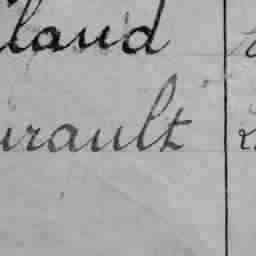 land
urault